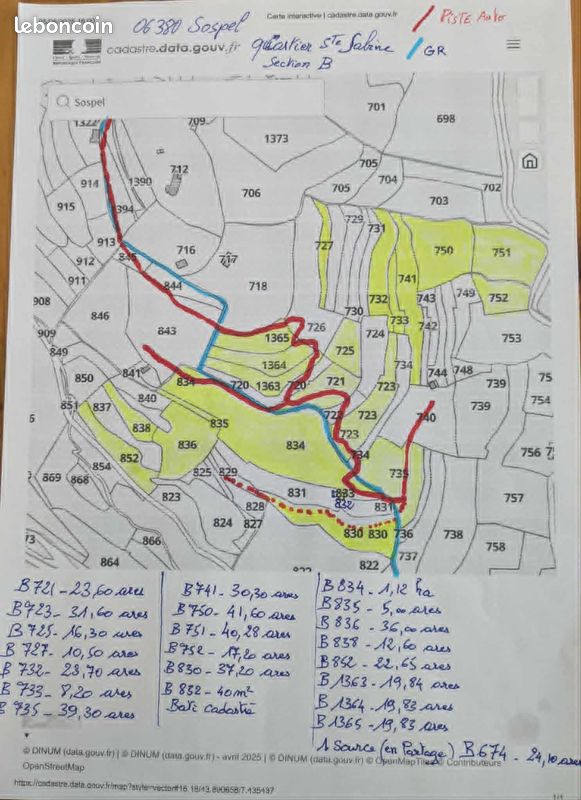 leboncoin
06380 Sospel
Carte interactive | cadastre.data.gouv.fr
PISTE Auto
cadastre.data.gouv.fr
quartier Ste Sabine
GR
Section B
Sospel
701
698
1322
709
1373
712
705
704
914
1390
706
705
703
702
915
394
729
731
913
716
727
750
751
845
717
912
741
911
844
718
749
752
908
732
743
846
730
733
742
753
843
726
724
909
1365
725
849
734
1364
841
744
748
850
834
720
1363
720
721
723
739
754
840
851
837
722
723
740
739
835
838
723
836
834
734
756
852
854
735
825
829
869
868
831
833
831
757
823
832
828
824
827
830
830
736
738
758
866
864
822
737
B721 - 23,60 ares
B723 - 31,60 ares
B725 - 16,30 ares
B727 - 10,50 ares
B732 - 23,70 ares
B733 - 8,20 ares
B735 - 39,30 ares
B741 - 30,30 ares
B750 - 41,60 ares
B751 - 40,28 ares
B752 - 17,20 ares
B830 - 37,20 ares
B832 - 40 m²
Bati cadastré
B834 - 1,12 ha
B835 - 5,00 ares
B836 - 36,00 ares
B838 - 12,60 ares
B852 - 22,65 ares
B1363 - 19,84 ares
B1364 - 19,83 ares
B1365 - 19,83 ares
1 Source (en Partage) B674 - 24,10 ares
© DINUM (data.gouv.fr) | © DINUM (data.gouv.fr) - avril 2025 | © DINUM (data.gouv.fr) © OpenMapTiles © Contributeurs
OpenStreetMap
https://cadastre.data.gouv.fr/map?style=vector#16.18/43.890658/7.435437
1/1